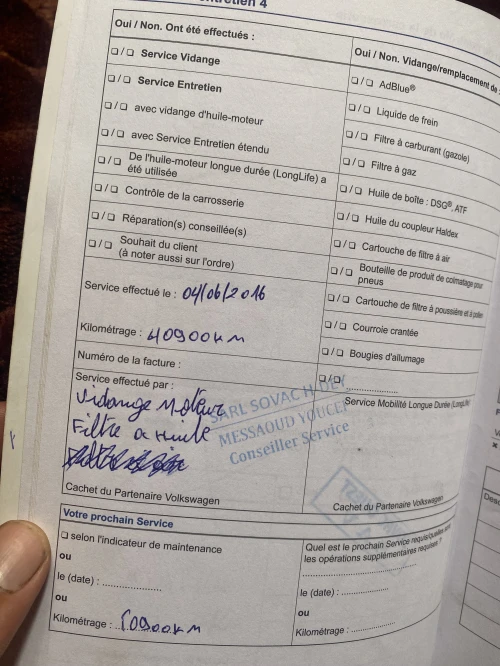 entretien 4
Oui / Non. Ont été effectués :
❏ / ❏ Service Vidange
❏ / ❏ Service Entretien
❏ / ❏ avec vidange d'huile-moteur
❏ / ❏ avec Service Entretien étendu
❏ / ❏ De l'huile-moteur longue durée (LongLife) a
été utilisée
❏ / ❏ Contrôle de la carrosserie
❏ / ❏ Réparation(s) conseillée(s)
❏ / ❏ Souhait du client
(à noter aussi sur l'ordre)
Service effectué le : 04/06/2016
Kilométrage : 40900KM
Numéro de la facture :
Service effectué par :
Vidange Moteur
Filtre a Huile
Cachet du Partenaire Volkswagen
Oui / Non. Vidange/remplacement de :
❏ / ❏ AdBlue®
❏ / ❏ Liquide de frein
❏ / ❏ Filtre à carburant (gazole)
❏ / ❏ Filtre à gaz
❏ / ❏ Huile de boîte : DSG®, ATF
❏ / ❏ Huile du coupleur Haldex
❏ / ❏ Cartouche de filtre à air
❏ / ❏ Bouteille de produit de colmatage pour
pneus
❏ / ❏ Cartouche de filtre à poussière et à pollen
❏ / ❏ Courroie crantée
❏ / ❏ Bougies d'allumage
❏ / ❏ ....................
Service Mobilité Longue Durée (LongLife)
SARL SOVAC
MESSAOUD YOUCEF
Conseiller Service
Cachet du Partenaire Volkswagen
Votre prochain Service
❏ selon l'indicateur de maintenance
ou
le (date) : ....................
ou
Kilométrage : 60900KM
Quel est le prochain Service requis/quelles sont
les opérations supplémentaires requises ?
....................
le (date) : ....................
ou
Kilométrage : ....................